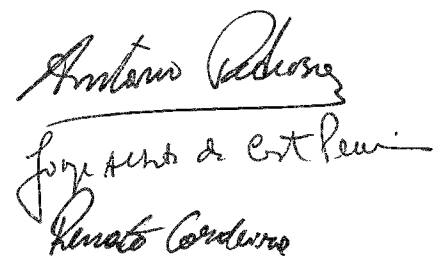 Antonio Pedrosa
Jorge Alberto da Cost
Renato Cordeiro